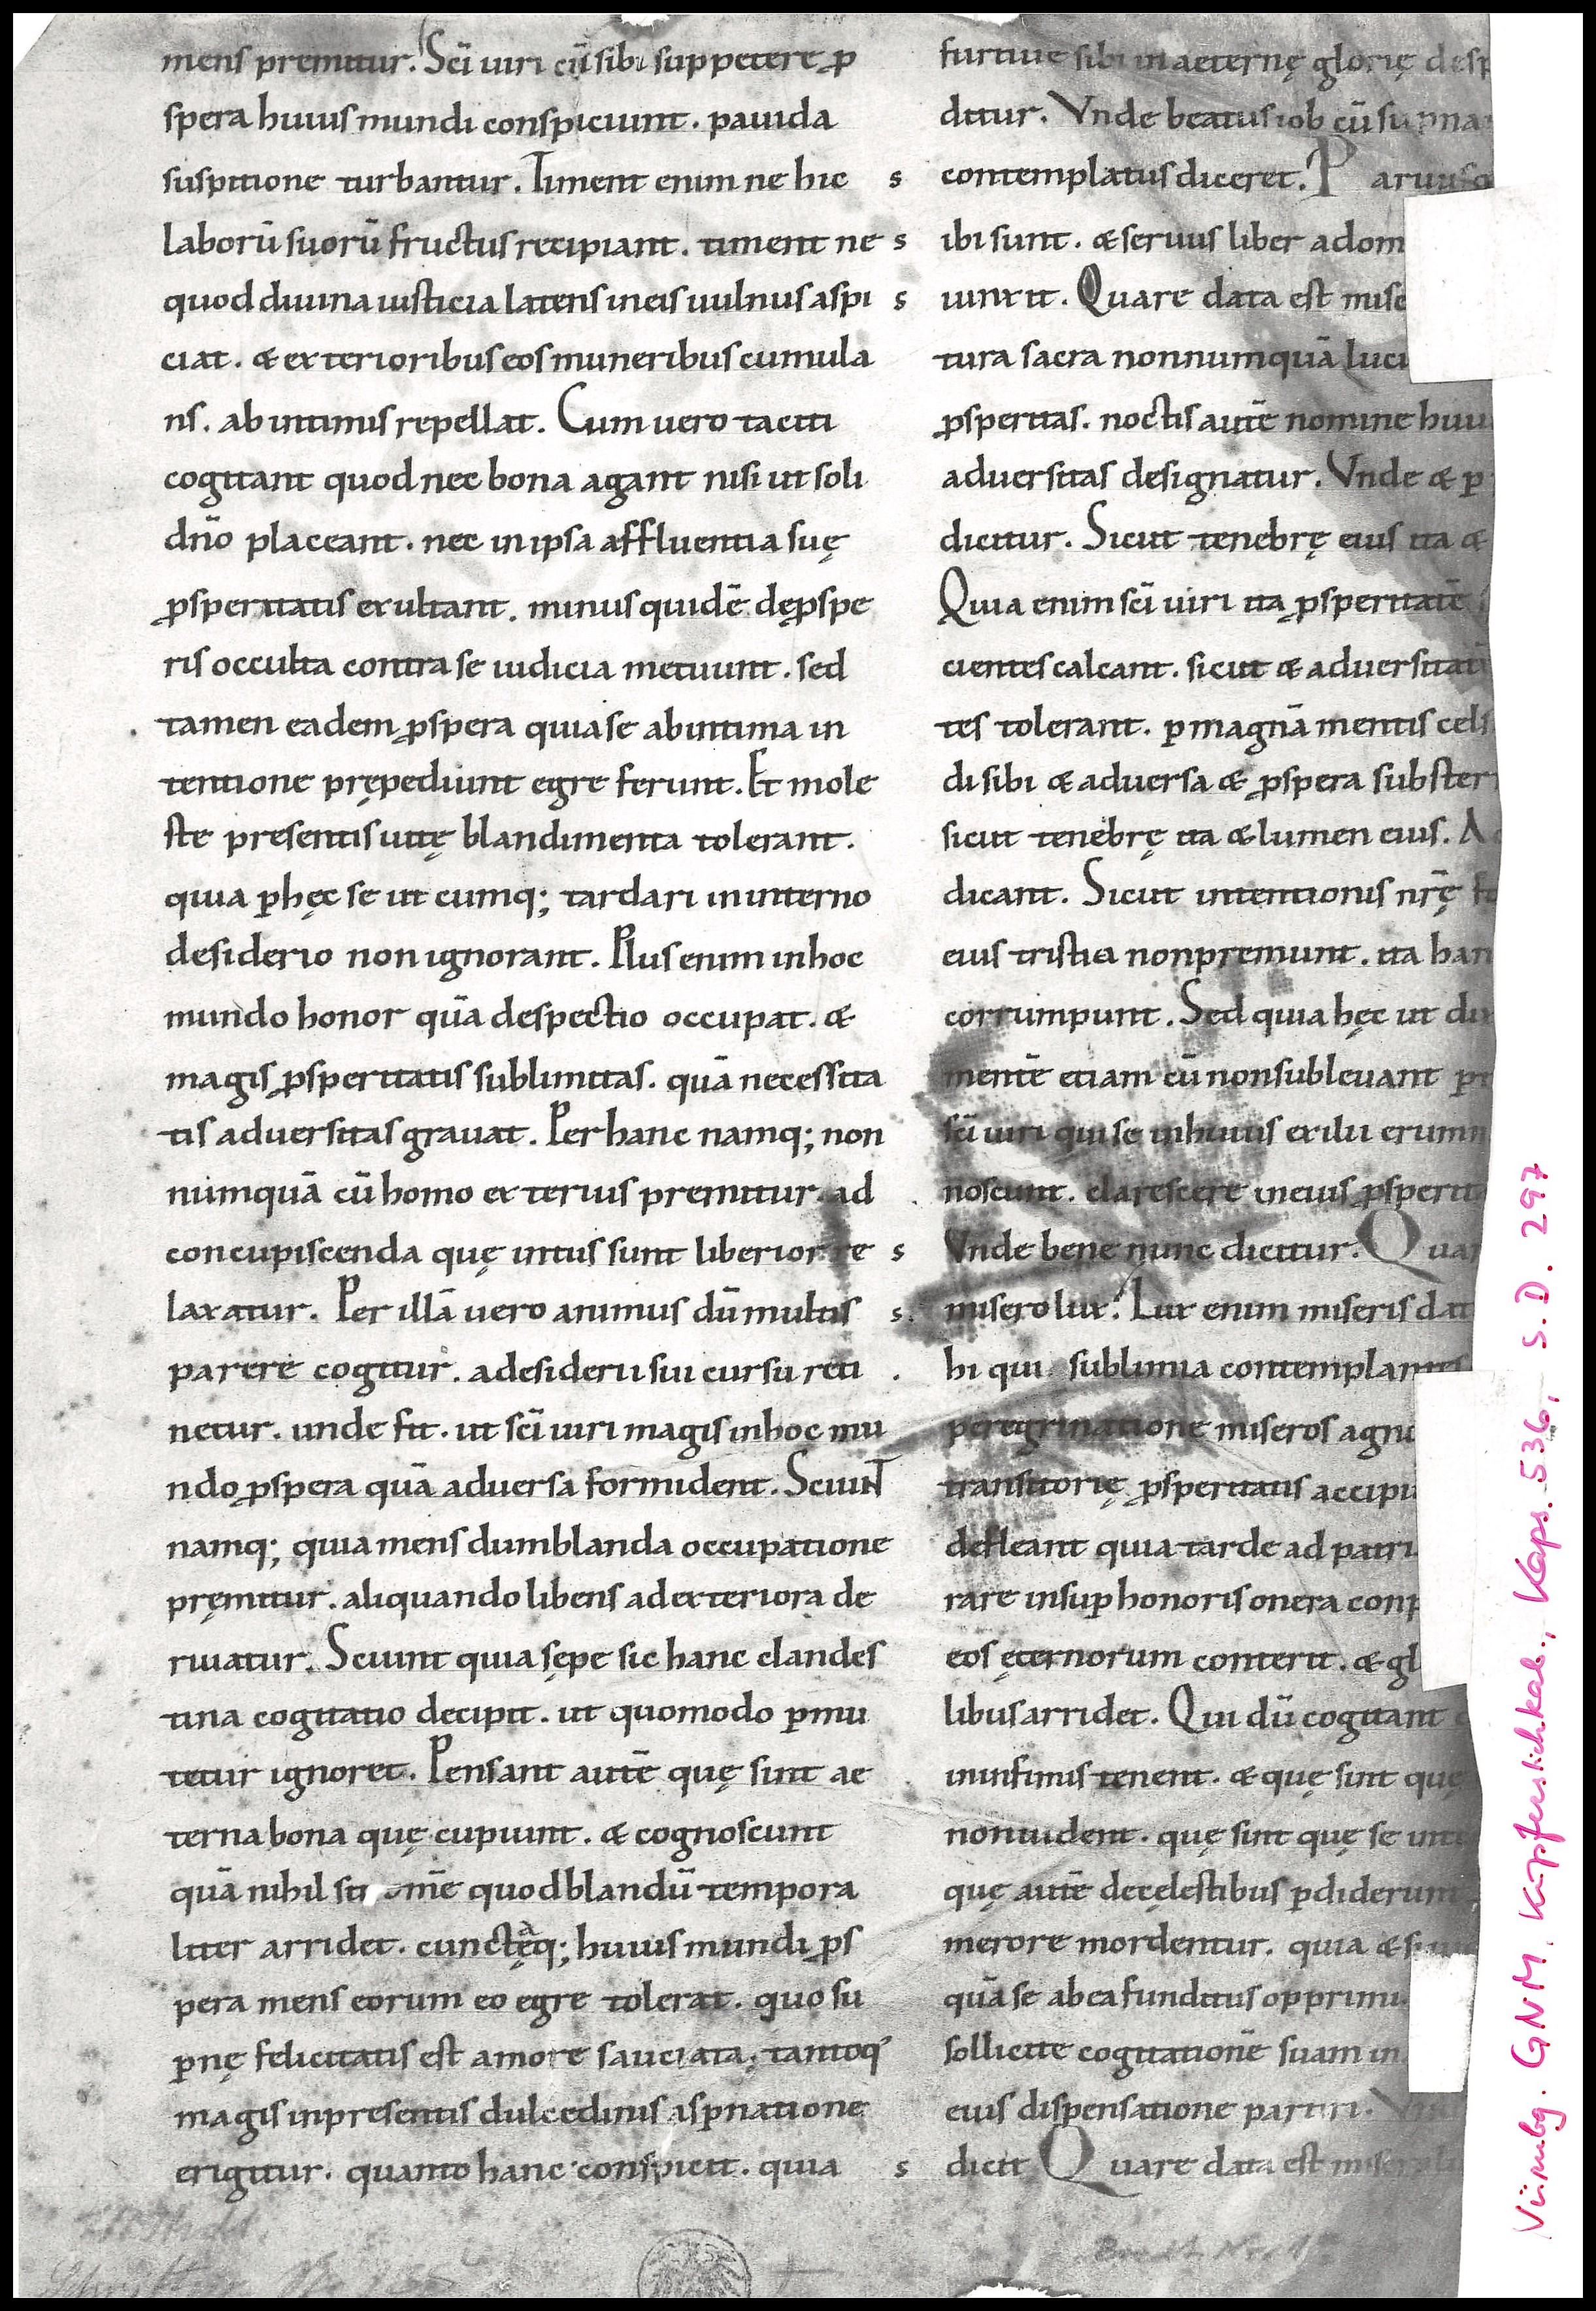 mens premitur. Sc̄i uiri cū sibi suppetere ꝓ
spera huius mundi conspiciunt. pauida
suspitione turbantur. Timent enim ne hic
laborū suorū fructus recipiant. timent ne
quod diuina iusticia latens in eis uulnus aspi
ciat. & exterioribus eos muneribus cumula
ns. ab intimis repellat. Cum uero taciti
cogitant quod nec bona agant nisi ut soli
dn̄o placeant. nec in ipsa affluentia suę
ꝓsperitatis exultant. minus quidē de ꝓspe
ris occulta contra se iudicia metuunt. sed
tamen eadem ꝓspera quia se ab intima in
tentione prępediunt egre ferunt. Et mole
ste presentis uitę blandimenta tolerant.
quia ꝑ hęc se ut cumq; tardari in interno
desiderio non ignorant. Plus enim in hoc
mundo honor quā despectio occupat. &
magis ꝓsperitatis sublimitas. quā necessita
tis aduersitas grauat. Per hanc namq; non
numquā cū homo exterius premitur. ad
concupiscenda quę intus sunt liberior re
laxatur. Per illā uero animus dū multis
parere cogitur. a desiderii sui cursu reti
netur. unde fit. ut sc̄i uiri magis in hoc mu
ndo ꝓspera quā aduersa formident. SciuNT
namq; quia mens dum blanda occupatione
pręmitur. aliquando libens ad exteriora de
riuatur. Sciunt quia sępe sic hanc clandes
tina cogitatio decipit. ut quomodo ꝑmu
tetur ignoret. Pensant autē quę sint ae
terna bona quę cupiunt. & cognoscunt
quā nihil sit om̄e quod blandū tempora
liter arridet. cunctęaq; huius mundi ꝓs
pera mens eorum eo egre tolerat. quo su
ꝑnę felicitatis est amore sauciata. tantoq'
magis in presentis dulcedinis asꝑnatione
erigitur. quanto hanc conspicit. quia
furtiue sibi in aeternę glorię desp
ditur. Vnde beatus iob cū suꝑna
s contemplatus diceret. Paruus
s ibi sunt. & seruus liber a dom
s iunxit. Quare data est mise
tura sacra nonnumquā luci
ꝓsperitas. noctis autē nomine huiu
aduersitas designatur. Vnde & ꝑ
dicitur. Sicut tenebrę eius ita &
Quia enim sc̄i uiri ita ꝓsperitatē
cientes calcant. sicut & aduersitatē
tes tolerant. ꝑ magnā mentis cels
di sibi & aduersa & ꝓspera subster
sicut tenebrę ita & lumen eius. A
dicant. Sicut intentionis nr̄ę fo
eius tristia non premunt. ita han
corrumpunt. Sed quia hęc ut du
mentē etiam cū non subleuant
sc̄i uiri qui se in huius exilii erumn
noscunt. clarescere in eius ꝓsperit
s Vnde bene nunc dicitur. Quar
s. misero lux. Lux enim miseris dat
hi qui sublimia contemplantes
peregrinatione miseros agno
transitorię ꝓsperitatis accipiu
defleant quia tarde ad patri
rare insuꝑ honoris onera conp
eos ęternorum conterit. & gl
libus arridet. Qui dū cogitant
in infimis tenent. & quę sint quę
non uident. quę sint quę se int
quę autē de cęlestibus ꝑdiderunt
merore mordentur. quia & si
quā se ab ea funditus opprimi
sollicite cogitationē suam in
eius dispensatione partiri.
s dicit Quare data est misero
Nürnbg. GNM. Kupferstichkab., Kaps. 536, S.D. 297